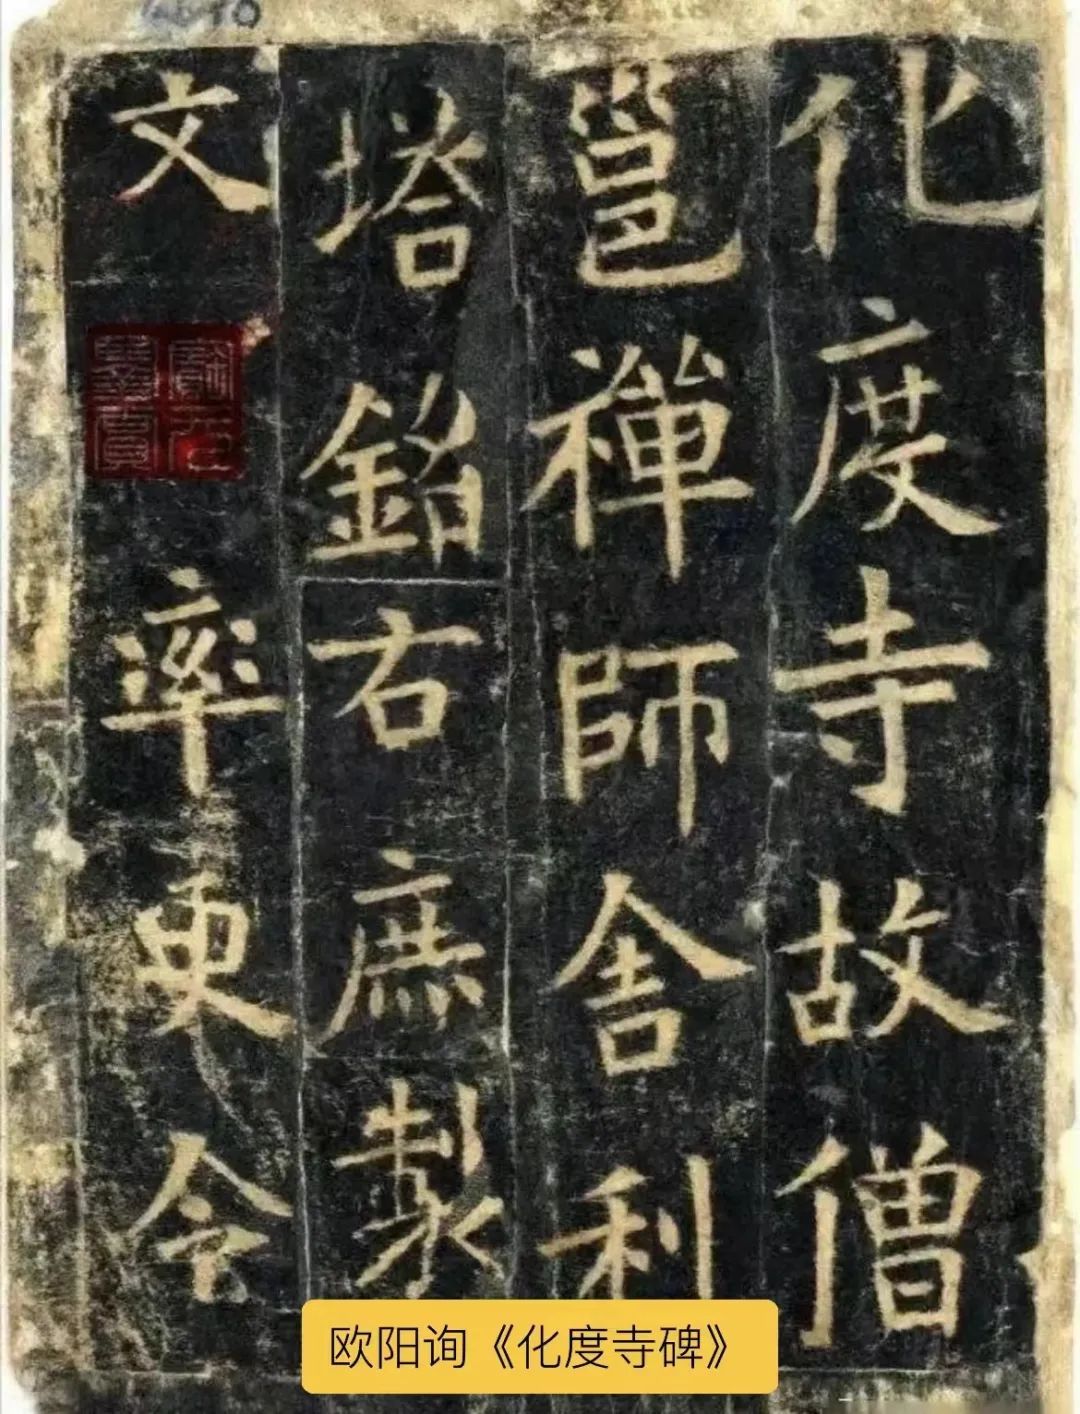 化度寺故僧
邕禪師舍利
塔銘右庶製
文率更令
欧阳询《化度寺碑》